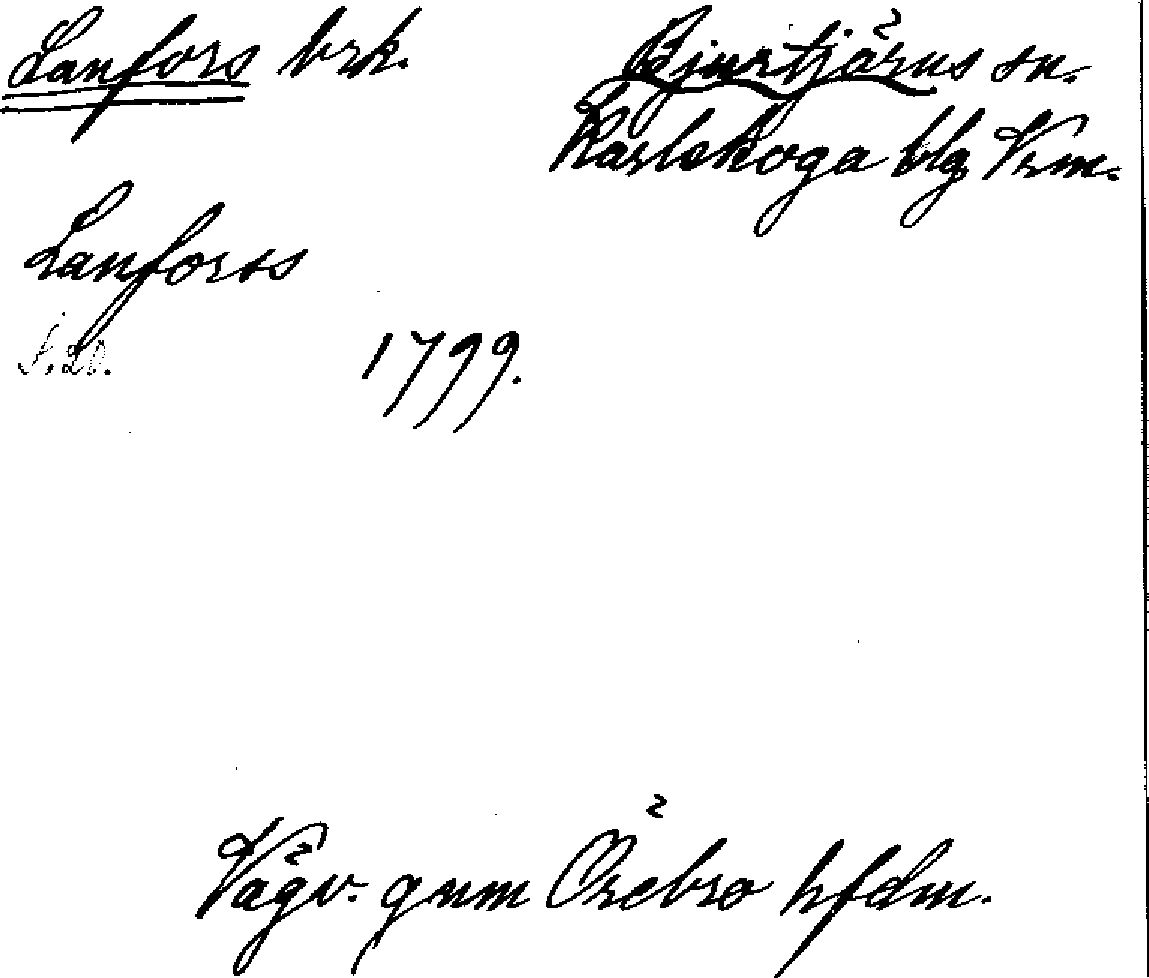 Lanfors brk.
Bjurtjärns sn.
Karlskoga blg Vrm.
Lanforss
s. 20. 1799.
Vägv. gnm Örebro hfdm.